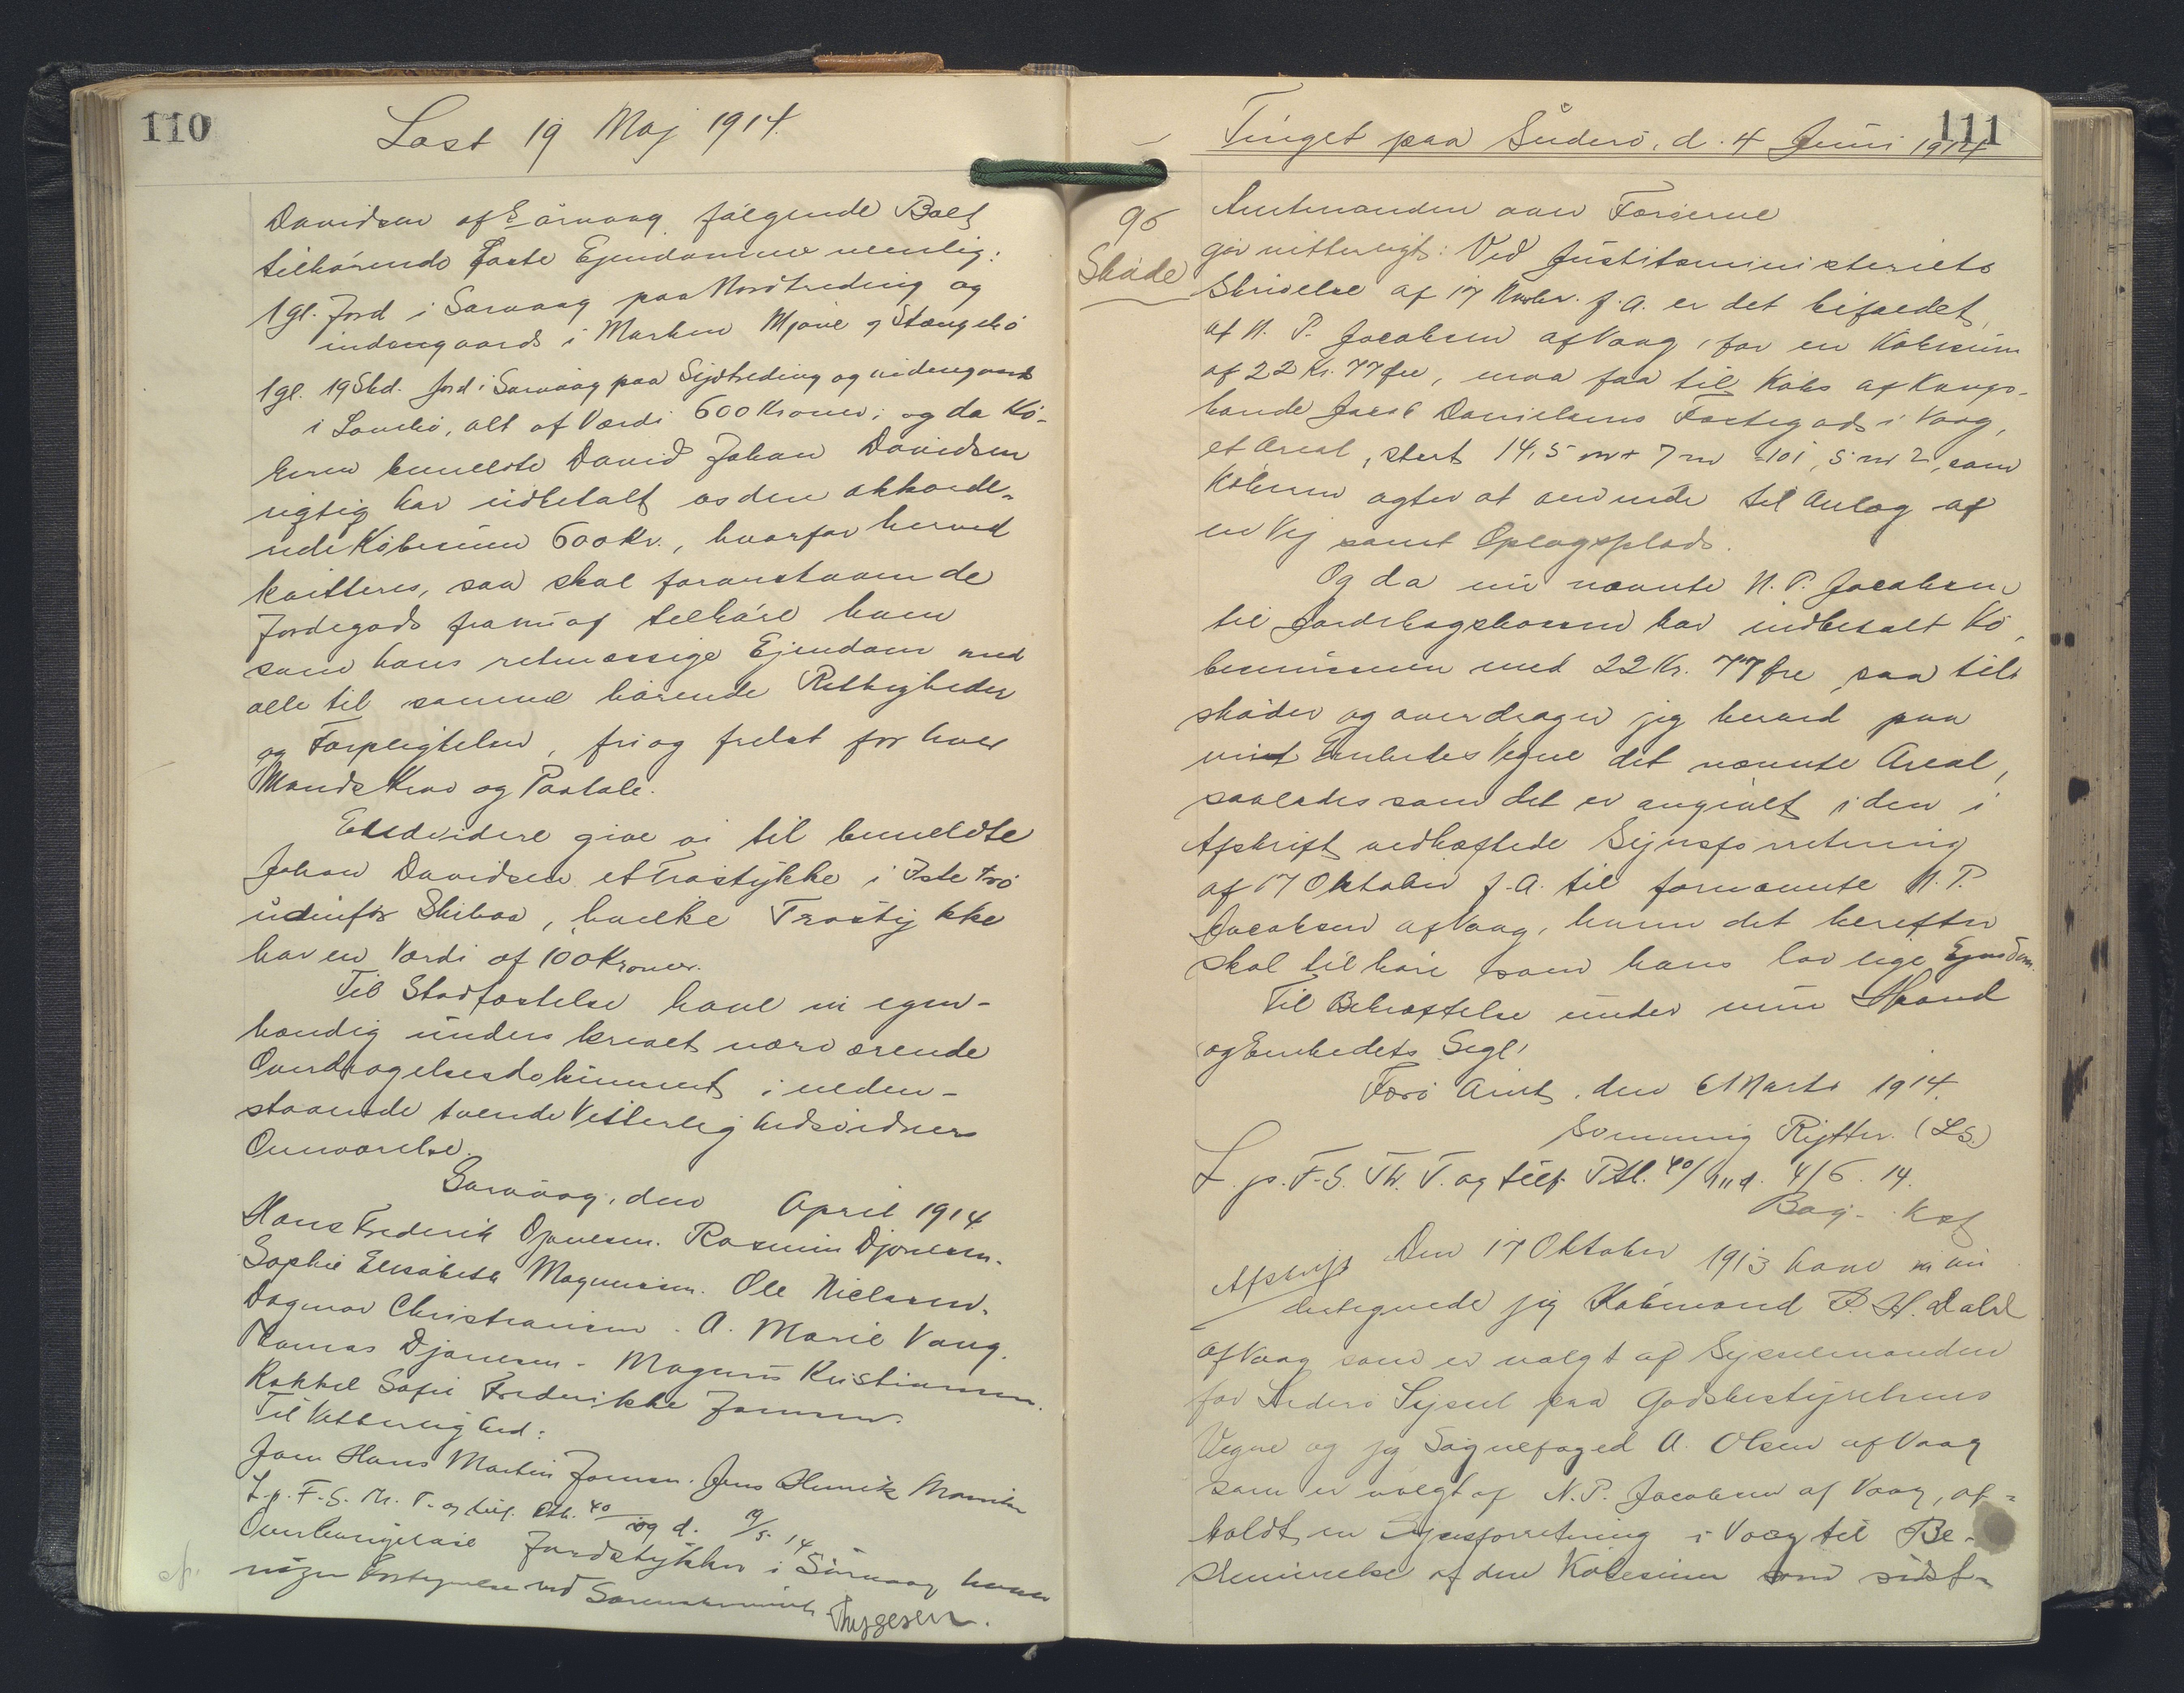 110
Læst 19 Maj 1914.
Davidsen af Sörvaag følgende Boet
tilhørende Faste Ejendomme nemlig:
1 gl. Jord i Sørvaag paa Nordtreding og
indengaards i Marken Mjove og Stongskö
1 gl. 19 Skd. Jord i Sørvaag paa Sydtreding og indengaards
i, alt af Værdi 600 Kroner; og da Kö-
beren bemeldte David Johan Davidsen
rigtig har udbetalt os den akkorde-
rede Købesum 600 Kr., hvorfor herved
kvitteres, saa skal foranstaaende
Jordegods fra nu af tilhøre ham
som hans retmæssige Ejendom med
alle til samme hørende Rettigheder
og Forpligtelser, fri og frelst for hver
Mands Krav og Paatale.
Endvidere give vi til bemeldte
Johan Davidsen et Træstykke i Iste Trö
udenfor Skibaa, hvilke Træstykke
har en Værdi af 100 Kroner.
Til Stadfæstelse have vi egen-
hændig underskrevet nærværende
Overdragelsesdokument i neden-
staaende tvende Vitterlighedsvidners
Overværelse.
Sørvaag, den April 1914
Hans Frederik Djonesen. Rasmine Djonesen.
Sophie Elisabeth Magnussen. Ole Nielsen.
Dagmar Christiansen. A. Marie Vang.
Thomas Djonesen. Magnus Kristiansen.
Rakkel Sofie Frederikke Joensen.
Til Vitterlighed:
Joen Hans Martin Joensen. Jens Henrik
L. p. F-S. Th. T. og tilf. Ptl. 40/ og d. 19/5. 14
Jordstykker i Sörvaag
ved Sorenskriveriet
Thygesen.
111
Tinget paa Süderö, d. 4 Juni 1914
96
Skøde
Amtmanden over Færøerne
gör vitterligt: Ved Justitsministeriets
Skrivelse af 17 Novbr. f. A. er det bifaldet,
at N. P. Jacobsen af Vaag, for en Købesum
af 22 Kr. 77 Øre, maa faa til Købs af Kongs-
bonde Jacob Danielsens Fæstegods i Vaag,
et Areal, stort 14,5 m × 7 m = 101,5 m 2, som
Köberen agter at anvende til Anlæg af
en Vej samt Oplagsplads.
Og da nu nævnte N. P. Jacobsen
til Jordebogskassen har indbetalt Kö-
besummen med 22 Kr. 77 Øre, saa til-
skøder og overdrager jeg herved paa
mit Embedes Vegne det nævnte Areal,
saaledes som det er angivet i den i
Afskrift vedhæftede Synsforretning
af 17 Oktober f. A. til fornævnte N. P.
Jacobsen af Vaag, hvem det herefter
skal tilhøre som hans lovlige Ejendom.
Til Bekræftelse under min Haand
og Embedets Segl!
Færö Amt, den 6 Marts 1914.
Svenning Rytter. (LS.)
L. p. F-S. Th. T. og tilf. Ptl. 40/ d. 4/6. 14.
Afskrift Den 17 Oktober 1913 have vi un-
dertegnede jeg Købmand P. H. Dahl
af Vaag som er valgt af Sysselmanden
for Süderö Syssel paa Godsbestyrelsens
Vegne og jeg Sognefoged A. Olsen af Vaag
som er valgt af N. P. Jacobsen af Vaag, af-
holdt en Synsforretning i Vaag til Be-
stemmelse af den Købesum som sidst-